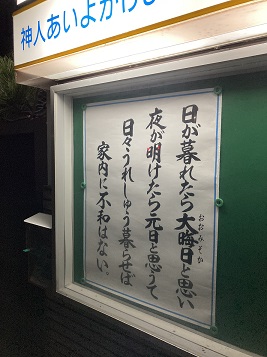 神人あいよかけよ
日が暮れたら大晦日と思い
おおみそか
夜が明けたら元日と思うて
日々うれしゅう暮らせば
家内に不和はない。